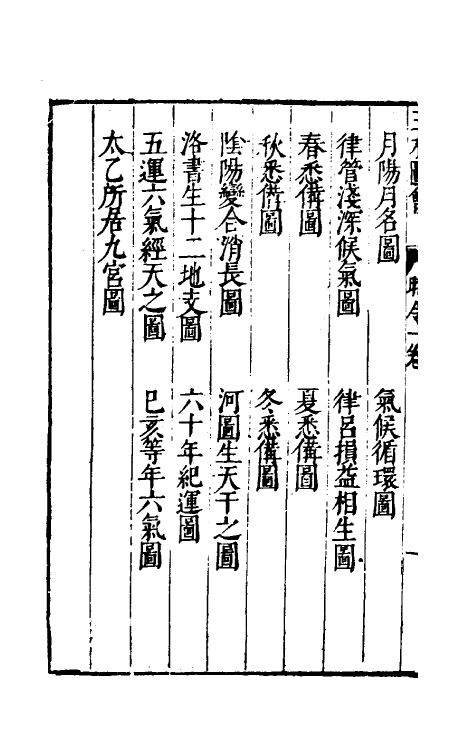 月陽月名圖　氣候循環圖
律管淺深候氣圖　律呂損益相生圖
春悉備圖　夏悉備圖
秋悉備圖　冬悉備圖
陰陽變合消長圖　河圖生天干之圖
洛書生十二地支圖　六十年紀運圖
五運六氣經天之圖　巳亥等年六氣圖
太乙所居九宮圖